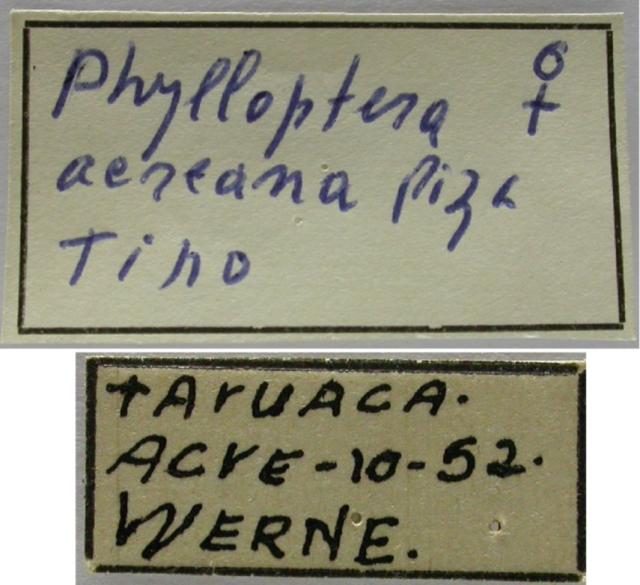 Phylloptera ♀
acreana Piza
Tipo
TArUACA.
ACrE-10-52.
WERNE.